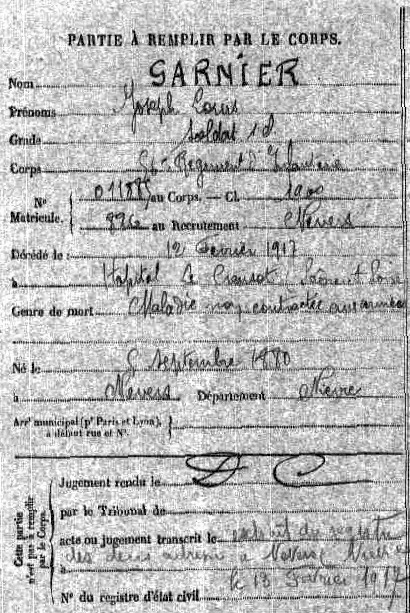 PARTIE À REMPLIR PAR LE CORPS.
Nom GARNIER
Prénoms Joseph Louis
Grade Soldat
Corps Régiment d'Infanterie
Nº Matricule. au Corps. — Cl. 1900
896 au Recrutement Nevers
Décédé le : 12 Février 1917
à Hopital Le Creusot Saône et Loire
Genre de mort Maladie non contractée aux armées
Né le 5 Septembre 1880
à Nevers Département Nièvre
Arrt municipal (pr Paris et Lyon),
à défaut rue et Nº.
Cette partie n'est pas à remplir par le Corps.
Jugement rendu le
par le Tribunal de
acte ou jugement transcrit le extrait du registre
des à Nevers Nièvre
le 13 Février 1917
Nº du registre d'état civil